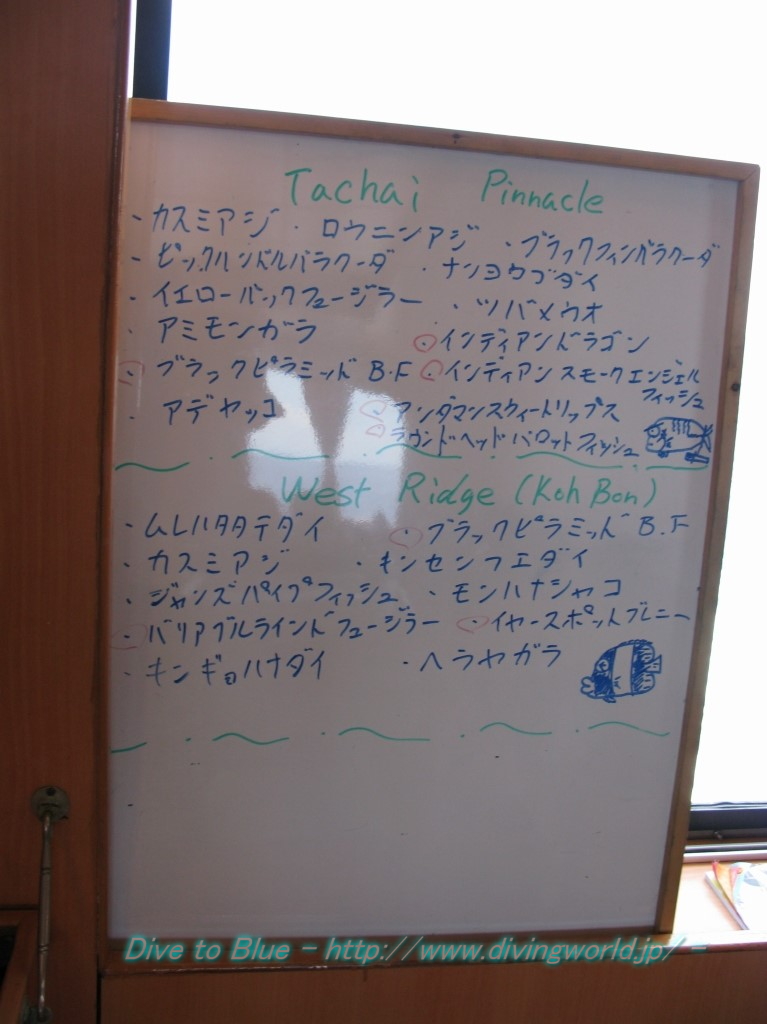 Tachai Pinnacle
・カスミアジ ・ロウニンアジ ・ブラックフィンバラクーダ
・ピックハンドルバラクーダ ・ナンヨウブダイ
・イエローバックフュージラー ・ツバメウオ
・アミモンガラ ・インディアンドラゴン
・ブラックピラミッド B.F ・インディアンスモークエンジェル
フィッシュ
・アデヤッコ ・アンダマンスウィートリップス
・ラウンドヘッドパロットフィッシュ
West Ridge (Koh Bon)
・ムレハタタテダイ ・ブラックピラミッド B.F
・カスミアジ ・キンセンフエダイ
・ジャンズパイプフィッシュ ・モンハナシャコ
・バリアブルラインドフュージラー ・イヤースポットブレニー
・キンギョハナダイ ・ヘラヤガラ
Dive to Blue - http://www.divingworld.jp/ -